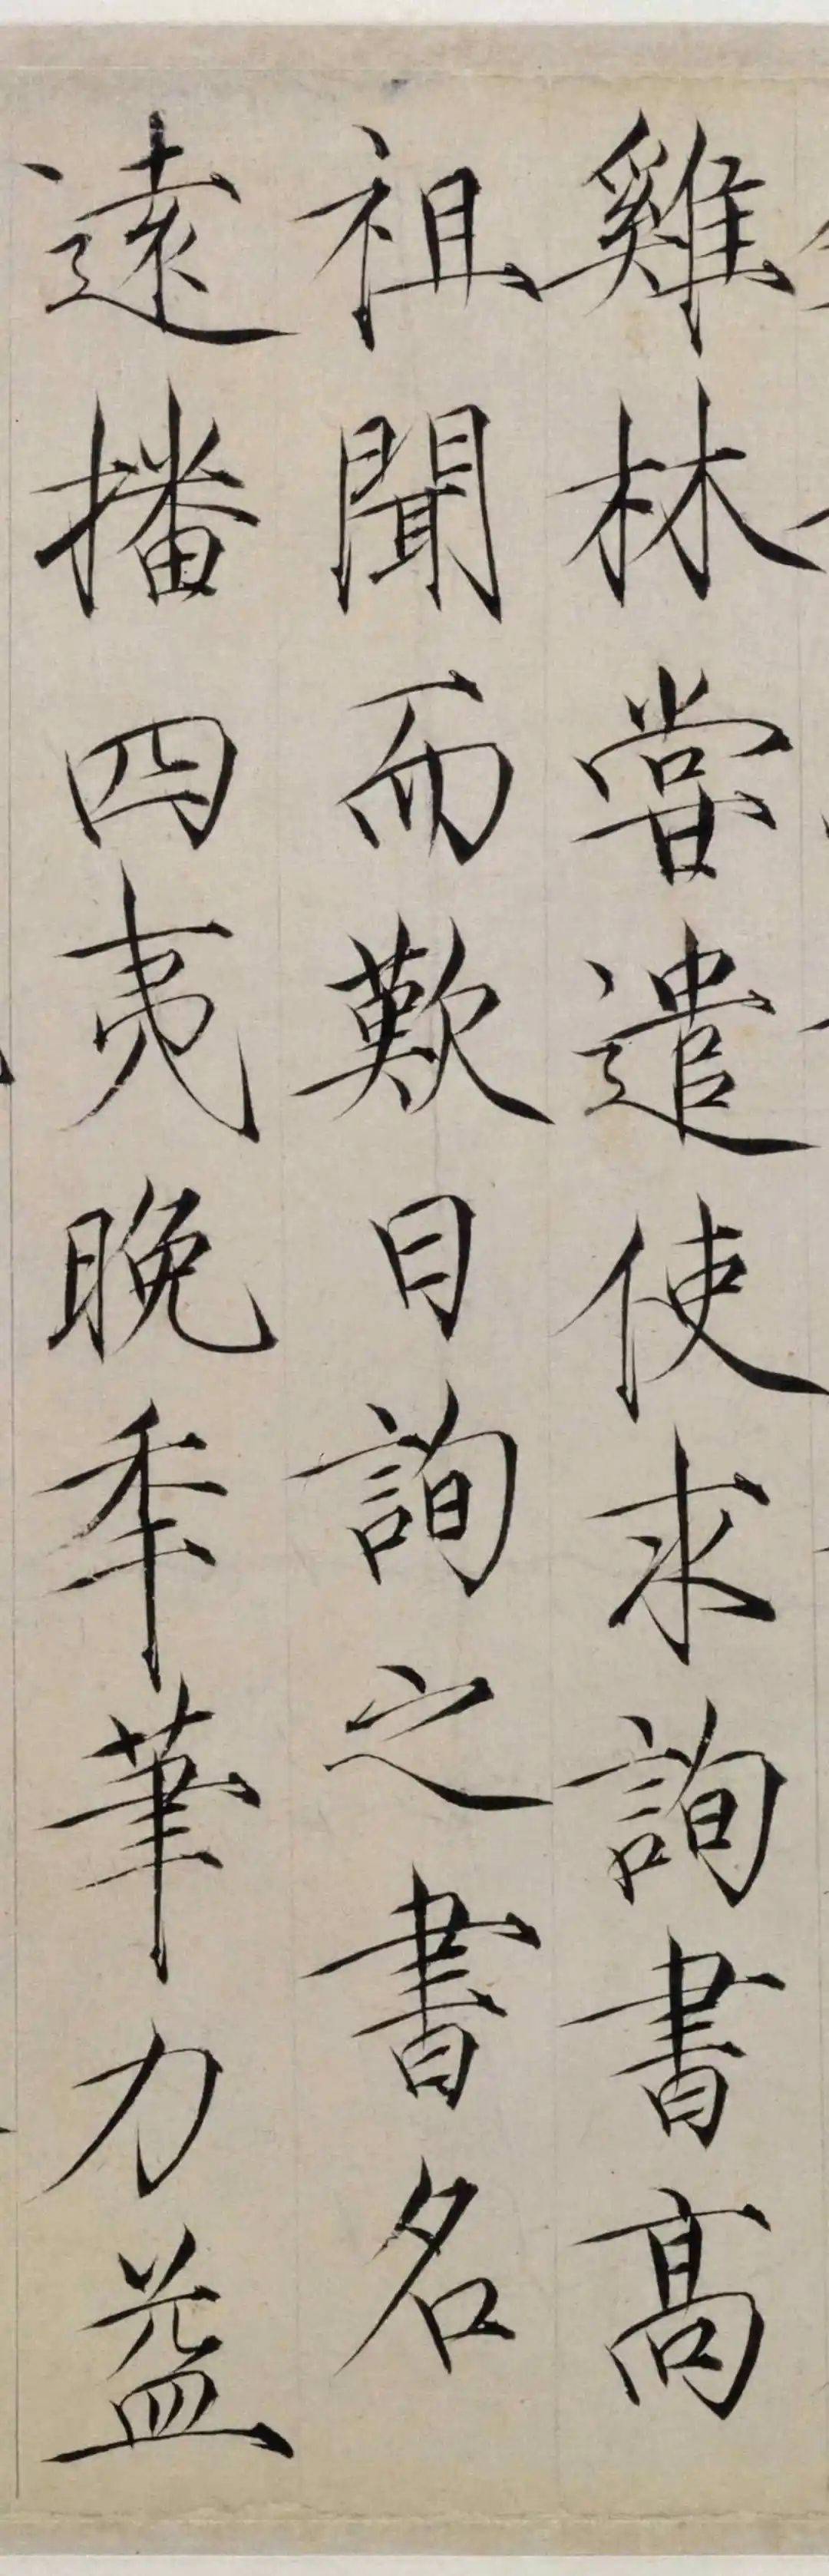 雞林嘗遣使求詢書高
祖聞而歎曰詢之書名
遠播四夷晚季筆力益